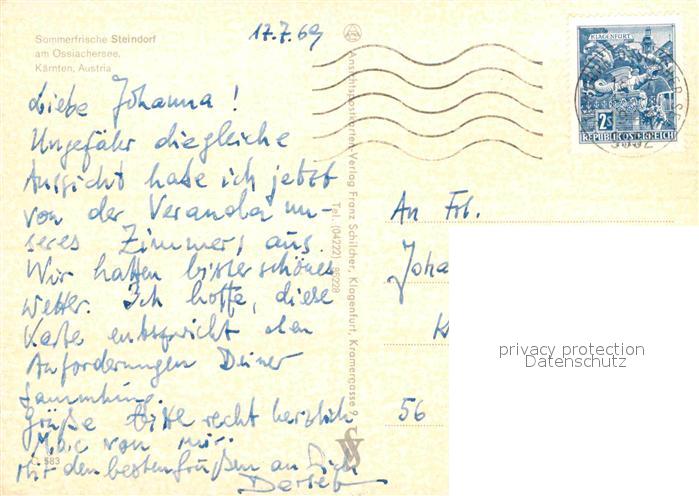 Sommerfrische Steindorf
am Ossiachersee,
Kärnten, Austria
17.7.69
Liebe Johanna!
Ungefähr die gleiche
Aussicht habe ich jetzt
von der Veranda un-
seres Zimmers aus.
Wir hatten bisher schönes
Wetter. Ich hoffe, diese
Karte entspricht den
Anforderungen Deiner
Sammlung.
Grüße bitte recht herzlich
von mir.
Mit den besten Grüßen an Dich
583
Ansichtspostkarten-Verlag Franz Schilcher, Klagenfurt, Kramergasse 9,
Tel. (04222) 85228
KLAGENFURT
2S
REPUBLIK ÖSTERREICH
An Frl.
Joha
K
56
privacy protection
Datenschutz